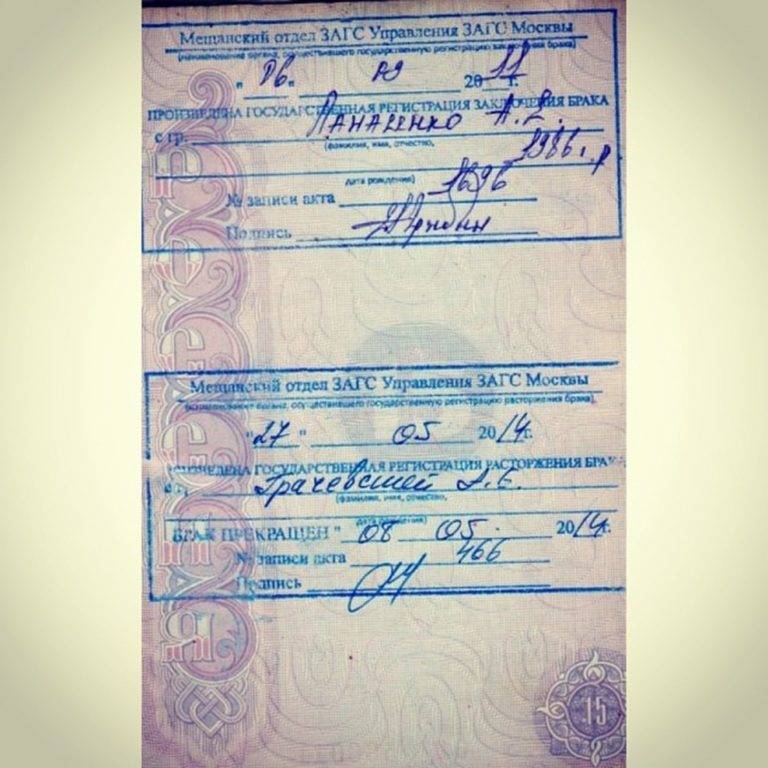 Мещанский отдел ЗАГС Управления ЗАГС Москвы
(наименование органа, осуществившего государственную регистрацию заключения брака)
"06" 09 2011г.
ПРОИЗВЕДЕНА ГОСУДАРСТВЕННАЯ РЕГИСТРАЦИЯ ЗАКЛЮЧЕНИЯ БРАКА
с гр. Панаценко А. Е.
(фамилия, имя, отчество,
1986 г. р
дата рождения)
№ записи акта 1696
Подпись
Мещанский отдел ЗАГС Управления ЗАГС Москвы
(наименование органа, осуществившего государственную регистрацию расторжения брака)
"27" 05 2014г.
ПРОИЗВЕДЕНА ГОСУДАРСТВЕННАЯ РЕГИСТРАЦИЯ РАСТОРЖЕНИЯ БРАКА
с гр. Грачевской А. Е.
(фамилия, имя, отчество,
дата рождения)
БРАК ПРЕКРАЩЕН "08 05. 2014г.
№ записи акта 466
Подпись
15